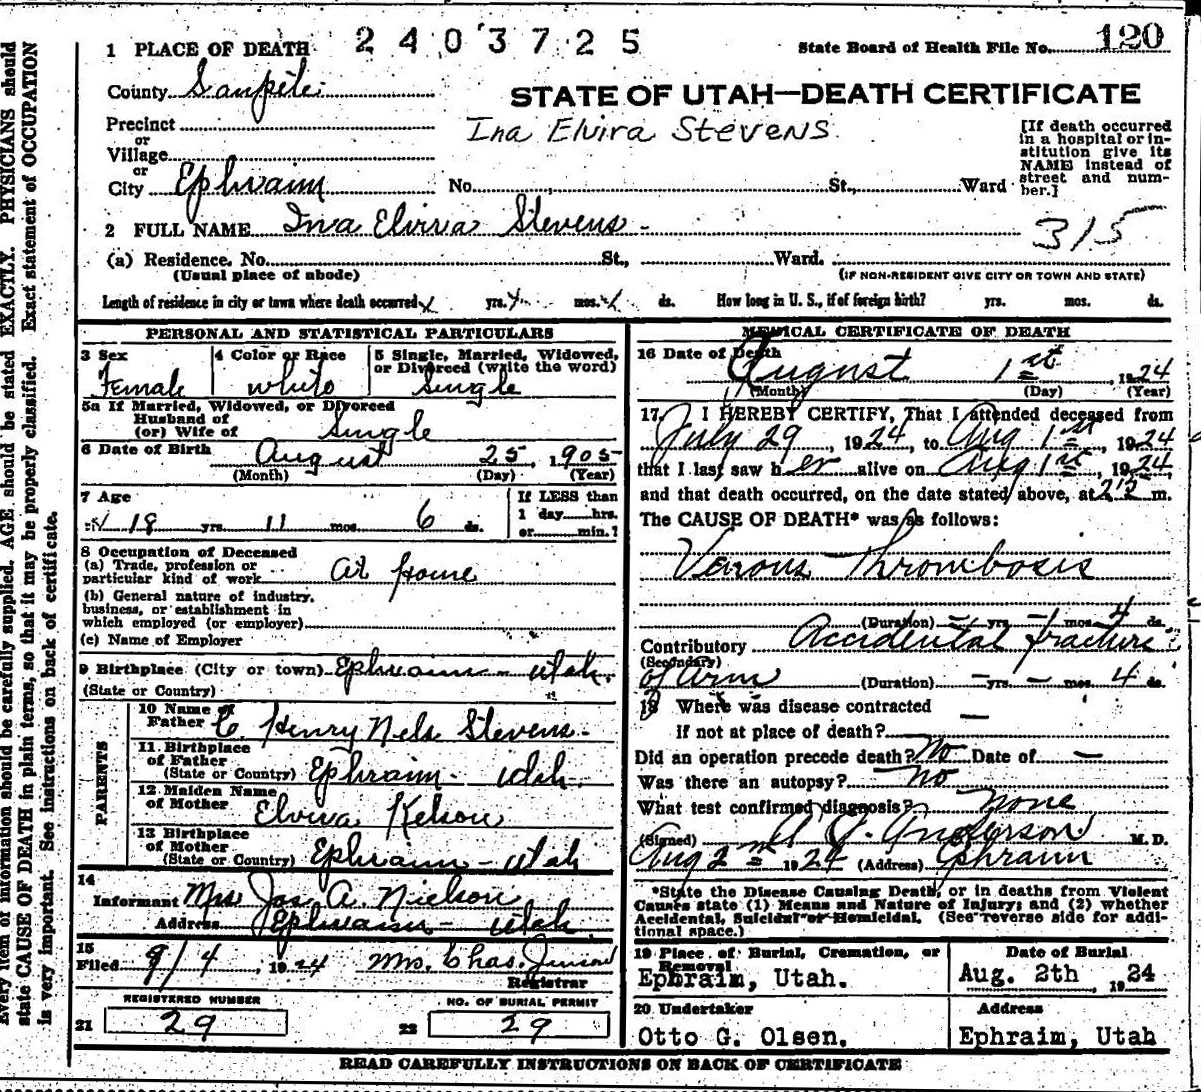 1 PLACE OF DEATH 2403725 State Board of Health File No. 120
County Sanpete
STATE OF UTAH—DEATH CERTIFICATE
Precinct
or
Village
or
City Ephraim No. , St., Ward
Ina Elvira Stevens
[If death occurred
in a hospital or in-
stitution give its
NAME instead of
street and num-
ber.]
2 FULL NAME Ina Elvira Stevens
315
(a) Residence. No. St., Ward.
(Usual place of abode) (IF NON-RESIDENT GIVE CITY OR TOWN AND STATE)
Length of residence in city or town where death occurred yrs. mos. ds. How long in U. S., if of foreign birth? yrs. mos. ds.
PERSONAL AND STATISTICAL PARTICULARS
3 Sex
Female
4 Color or Race
white
5 Single, Married, Widowed,
or Divorced (write the word)
Single
5a If Married, Widowed, or Divorced
Husband of
(or) Wife of Single
6 Date of Birth August 25, 1905
(Month) (Day) (Year)
7 Age
18 yrs. 11 mos. 6 ds.
If LESS than
1 day hrs.
or min.?
8 Occupation of Deceased
(a) Trade, profession or
particular kind of work At home
(b) General nature of industry,
business, or establishment in
which employed (or employer)
(c) Name of Employer
9 Birthplace (City or town) Ephraim - Utah.
(State or Country)
PARENTS
10 Name of
Father C. Henry Nels Stevens
11 Birthplace
of Father
(State or Country) Ephraim - Utah.
12 Maiden Name
of Mother Elvira Kelson
13 Birthplace
of Mother
(State or Country) Ephraim - Utah
14
Informant Mrs Jas A. Nielson
Address Ephraim - Utah.
15
Filed 9/4, 1924 Mrs. Chas. Jenson
Registrar
REGISTERED NUMBER
21 29
NO. OF BURIAL PERMIT
22 29
MEDICAL CERTIFICATE OF DEATH
16 Date of Death
August 1st, 1924
(Month) (Day) (Year)
17 I HEREBY CERTIFY, That I attended deceased from
July 29, 1924, to Aug 1st, 1924
that I last saw her alive on Aug 1st, 1924,
and that death occurred, on the date stated above, at m.
The CAUSE OF DEATH* was as follows:
Venous Thrombosis
(Duration) - yrs - mos 4 ds.
Contributory Accidental fracture
(Secondary)
of Arm (Duration) - yrs. - mos. 4 ds.
18 Where was disease contracted
If not at place of death? -
Did an operation precede death? No Date of -
Was there an autopsy? No
What test confirmed diagnosis? none
(Signed) A J. Anderson M. D.
Aug 2nd 1924 (Address) Ephraim
*State the Disease Causing Death, or in deaths from Violent
Causes state (1) Means and Nature of Injury; and (2) whether
Accidental, Suicidal or Homicidal. (See reverse side for addi-
tional space.)
19 Place of Burial, Cremation, or
Removal
Ephraim, Utah.
Date of Burial
Aug. 2th, 1924
20 Undertaker
Otto G. Olsen.
Address
Ephraim, Utah
READ CAREFULLY INSTRUCTIONS ON BACK OF CERTIFICATE
Every item of information should be carefully supplied. AGE should be stated EXACTLY. PHYSICIANS should
state CAUSE OF DEATH in plain terms, so that it may be properly classified. Exact statement of OCCUPATION
is very important. See instructions on back of certificate.